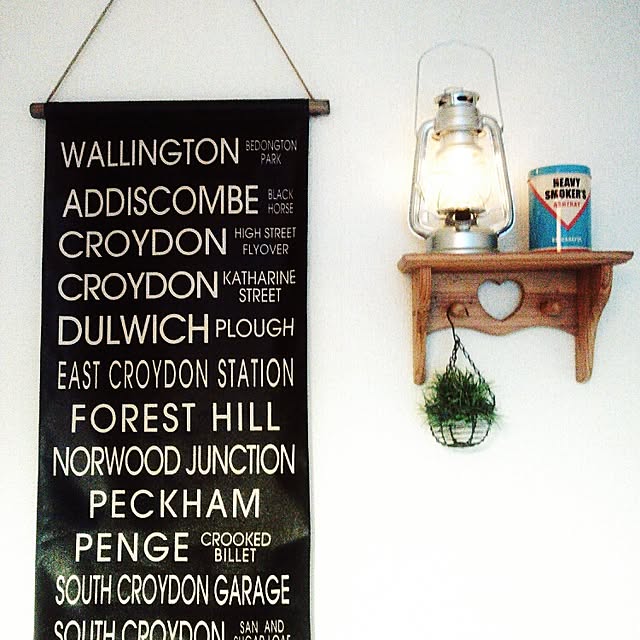 WALLINGTON BEDONGTON PARK
ADDISCOMBE BLACK HORSE
CROYDON HIGH STREET FLYOVER
CROYDON KATHARINE STREET
DULWICH PLOUGH
EAST CROYDON STATION
FOREST HILL
NORWOOD JUNCTION
PECKHAM
PENGE CROOKED BILLET
SOUTH CROYDON GARAGE
SOUTH CROYDON SAN AND SUGAR LOAF
HEAVY
SMOKER'S
ASHTRAY